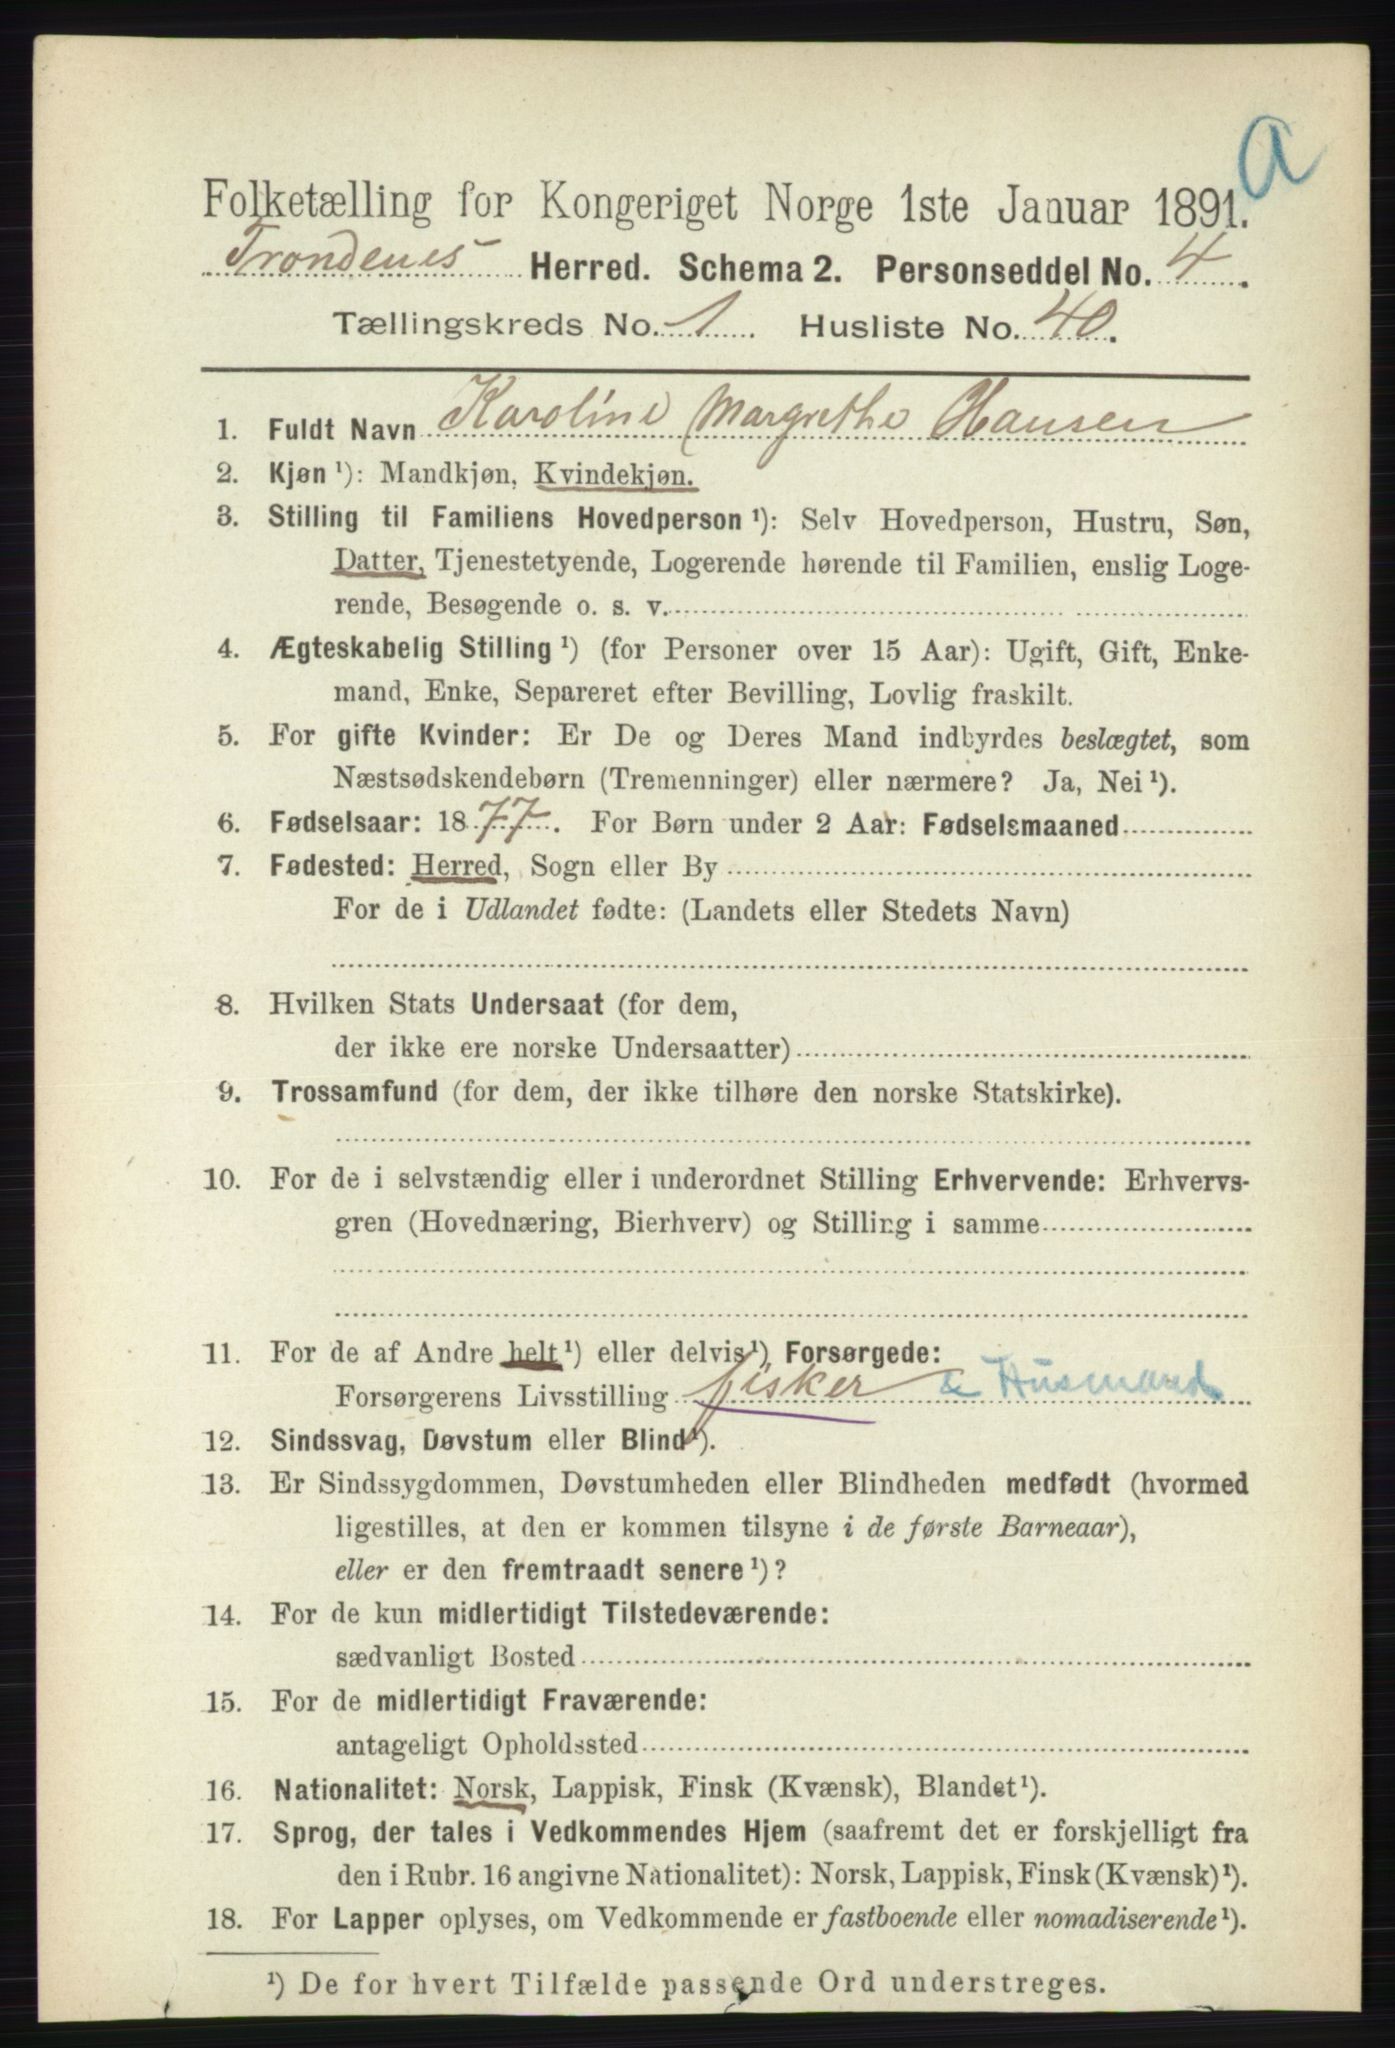 a
Folketælling for Kongeriget Norge 1ste Januar 1891.
Trondenes Herred. Schema 2. Personseddel No. 4.
Tællingskreds No. 1. Husliste No. 40.
1. Fuldt Navn Karoline Margrethe Hansen
2. Kjøn ¹): Mandkjøn, Kvindekjøn.
3. Stilling til Familiens Hovedperson ¹): Selv Hovedperson, Hustru, Søn,
Datter, Tjenestetyende, Logerende hørende til Familien, enslig Loge-
rende, Besøgende o. s. v.
4. Ægteskabelig Stilling ¹) (for Personer over 15 Aar): Ugift, Gift, Enke-
mand, Enke, Separeret efter Bevilling, Lovlig fraskilt.
5. For gifte Kvinder: Er De og Deres Mand indbyrdes beslægtet, som
Næstsødskendebørn (Tremenninger) eller nærmere? Ja, Nei ¹).
6. Fødselsaar: 1877. For Børn under 2 Aar: Fødselsmaaned
7. Fødested: Herred, Sogn eller By
For de i Udlandet fødte: (Landets eller Stedets Navn)
8. Hvilken Stats Undersaat (for dem,
der ikke ere norske Undersaatter)
9. Trossamfund (for dem, der ikke tilhøre den norske Statskirke).
10. For de i selvstændig eller i underordnet Stilling Erhvervende: Erhvervs-
gren (Hovednæring, Bierhverv) og Stilling i samme
11. For de af Andre helt ¹) eller delvis ¹) Forsørgede:
Forsørgerens Livsstilling fisker & Husmand
12. Sindssvag, Døvstum eller Blind ¹).
13. Er Sindssygdommen, Døvstumheden eller Blindheden medfødt (hvormed
ligestilles, at den er kommen tilsyne i de første Barneaar),
eller er den fremtraadt senere ¹)?
14. For de kun midlertidigt Tilstedeværende:
sædvanligt Bosted
15. For de midlertidigt Fraværende:
antageligt Opholdssted
16. Nationalitet: Norsk, Lappisk, Finsk (Kvænsk), Blandet ¹).
17. Sprog, der tales i Vedkommendes Hjem (saafremt det er forskjelligt fra
den i Rubr. 16 angivne Nationalitet): Norsk, Lappisk, Finsk (Kvænsk) ¹).
18. For Lapper oplyses, om Vedkommende er fastboende eller nomadiserende ¹).
¹) De for hvert Tilfælde passende Ord understreges.